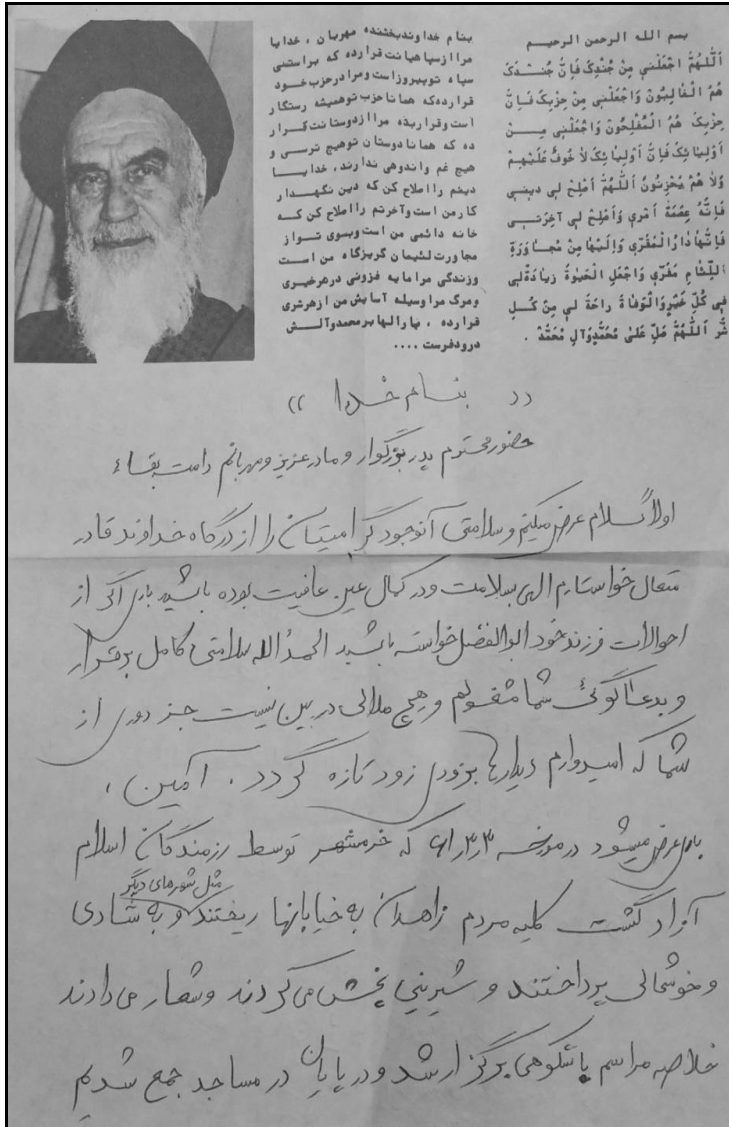 بسم الله الرحمن الرحیم
اَللّهُمَّ اجْعَلْنی مِنْ جُنْدِکَ فَاِنَّ جُنْدَکَ
هُمُ الْغالِبُونَ وَاجْعَلْنی مِنْ حِزْبِکَ فَاِنَّ
حِزْبَکَ هُمُ الْمُفْلِحُونَ وَاجْعَلْنی مِنْ
اَوْلِیائِکَ فَاِنَّ اَوْلِیائَکَ لاخَوْفٌ عَلَیْهِمْ
وَلا هُمْ یَحْزَنُونَ اَللّهُمَّ اَصْلِحْ لی دینی
فَاِنَّهُ عِصْمَةُ اَمْری وَاَصْلِحْ لی آخِرَتی
فَاِنَّها دارُ الْمَقَرّی وَاِلَیْها مِنْ مُجاوَرَةِ
اللِّئامِ مَفَرّی وَاجْعَلِ الْحَیوةَ زِیادَةً لی
فی کُلِّ خَیْرٍ وَالْوَفاةَ راحَةً لی مِنْ کُلِ
شَّر اَللّهُمَّ صَلِّ عَلی مُحَمَّدٍ وَآلِ مُحَمَّدْ .
بنام خداوند بخشنده مهربان ، خدایا
مرا از سپاهیانت قرار ده که براستی
سپاه تو پیروز است و مرا در حزب خود
قرار ده که همانا حزب تو همیشه رستگار
است و قرار بده مرا از دوستانت قرار
ده که همانا دوستان تو هیچ ترسی و
هیچ غم و اندوهی ندارند ، خدایا
دینم را اصلاح کن که دین نگهدار
کار من است و آخرتم را اصلاح کن که
خانه دائمی من است و بسوی تو از
مجاورت لئیمان گریزگاه من است
و زندگی مرا مایه فزونی در هر خیری
و مرگ مرا وسیله آسایش من از هر شری
قرار ده ، بارالها بر محمد و آلش
درود فرست ....
(( بنام خدا ))
حضور محترم پدر بزرگوار و مادر عزیز و مهربانم دامت بقاء
اولاً سلام عرض میکنم و سلامتی آنوجود گرامیتان را از درگاه خداوند قادر
متعال خواستارم الهی سلامت و در کمال عین عافیت بوده باشید باری اگر از
احوالات فرزند خود ابوالفضل خواسته باشید الحمدُالله سلامتی کامل برقرار
و بدعاگوئی شما مشغولم و هیچ ملالی در بین نیست جز دوری از
شما که امیدوارم دیدارها بزودی زود تازه گردد . آمین ،
باری عرض میشود در مورخه ۶۱٫۳٫۳ که خرمشهر توسط رزمندگان اسلام
آزاد گشت کلیه مردم زاهدان مثل شهرهای دیگر به خیابانها ریختند و به شادی
و خوشحالی پرداختند و شیرینی پخش می کردند و شعار می دادند
خلاصه مراسم باشکوهی برگزار شد و در پایان در مساجد جمع شدیم